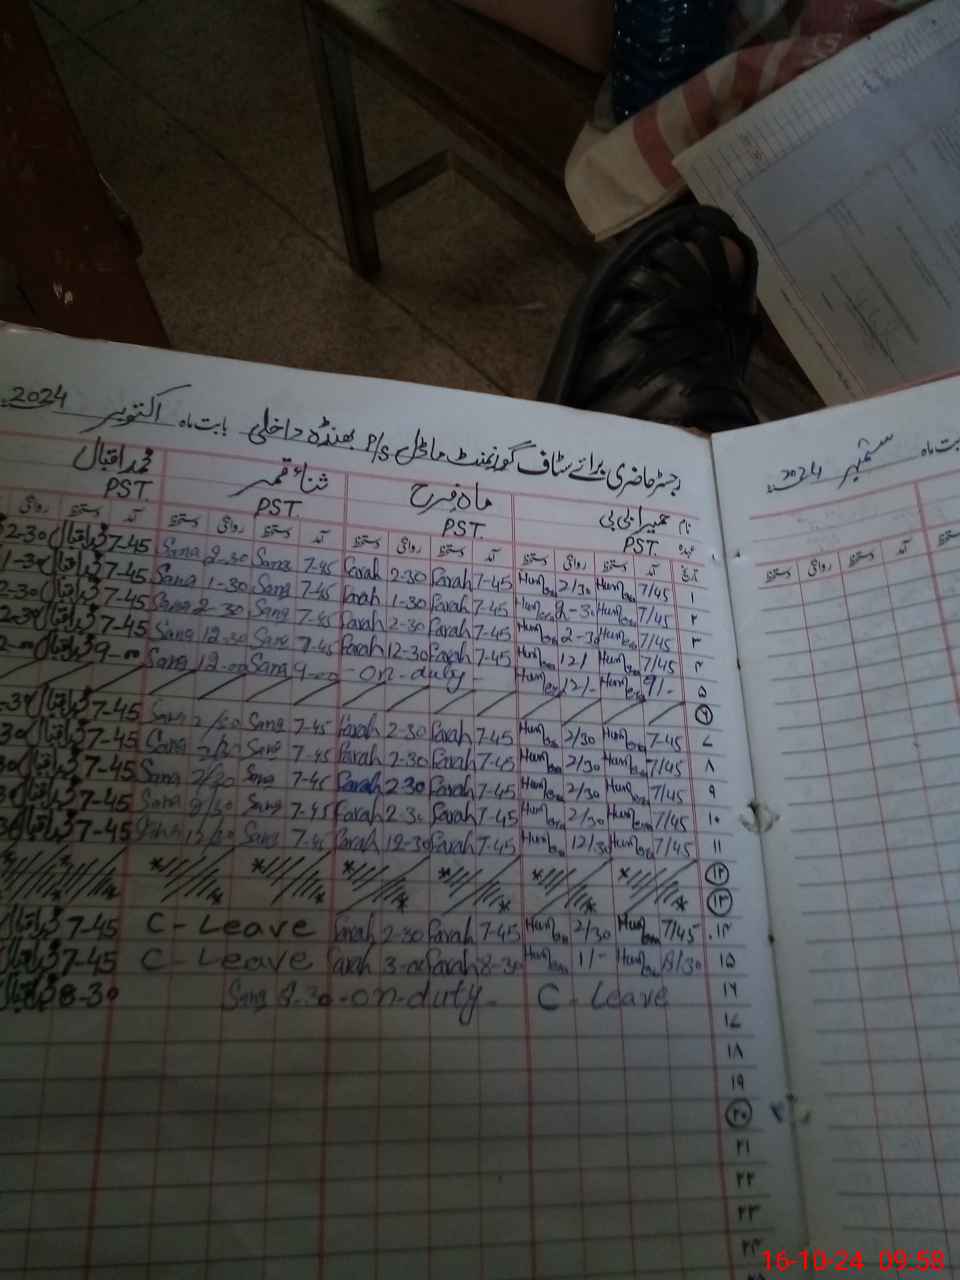 رجسٹر حاضری برائے سٹاف گورنمنٹ ماڈل P/S بھنڈہ داخلی بابت ماہ اکتوبر 2024
بابت ماہ ستمبر 2024
نام حمیرا بی بی ماہ فرح ثناء قمر محمد اقبال
عہدہ PST. PST. PST. PST.
تاریخ آمد دستخط روانگی دستخط آمد دستخط روانگی دستخط آمد دستخط روانگی دستخط آمد دستخط روانگی
۱ 7/45 Humera 2/30 Humera 7-45 Farah 2-30 Farah 7-45 Sana 2-30 Sana 7-45 محمد اقبال 2-30
۲ 7/45 Humera 7-45 Farah 1-30 Farah 7-45 Sana 1-30 Sana 7-45 محمد اقبال 1-30
۳ 7/45 Humera 2-30 Humera 7-45 Farah 2-30 Farah 7-45 Sana 2-30 Sana 7-45 محمد اقبال 2-30
۴ 7/45 Humera 12/ Humera 7-45 Farah 12-30 Farah 7-45 Sana 12-30 Sana 7-45 محمد اقبال
۵ 9/- Humera 12/- Humera - on - duty - 9-00 Sana 12-00 Sana 9-00 محمد اقبال
۶
۷ 7-45 Humera 2/30 Humera 7-45 Farah 2-30 Farah 7-45 Sana 2/30 Sana 7-45 محمد اقبال
۸ 7/45 Humera 2/30 Humera 7-45 Farah 2-30 Farah 7-45 Sana 2/30 Sana 7-45 محمد اقبال
۹ 7/45 Humera 2/30 Humera 7-45 Farah 2-30 Farah 7-45 Sana 2/30 Sana 7-45 محمد اقبال
۱۰ 7/45 Humera 2/30 Humera 7-45 Farah 2-30 Farah 7-45 Sana 2/30 Sana 7-45 محمد اقبال
۱۱ 7/45 Humera 12/30 Humera 7-45 Farah 12-30 Farah 7-45 Sana 12/30 Sana 7-45 محمد اقبال
۱۲
۱۳
۱۴ 7/45 Humera 2/30 Humera 7-45 Farah 2-30 Farah C - Leave 7-45 محمد اقبال
۱۵ 8/30 Humera 1/- Humera 8-30 Farah 3-00 Farah C - Leave 7-45 محمد اقبال
۱۶ C - Leave - on - duty - 8-30 Sana 8-30 محمد اقبال
۱۷
۱۸
۱۹
۲۰
۲۱
۲۲
۲۳
۲۴
16-10-24 09:58